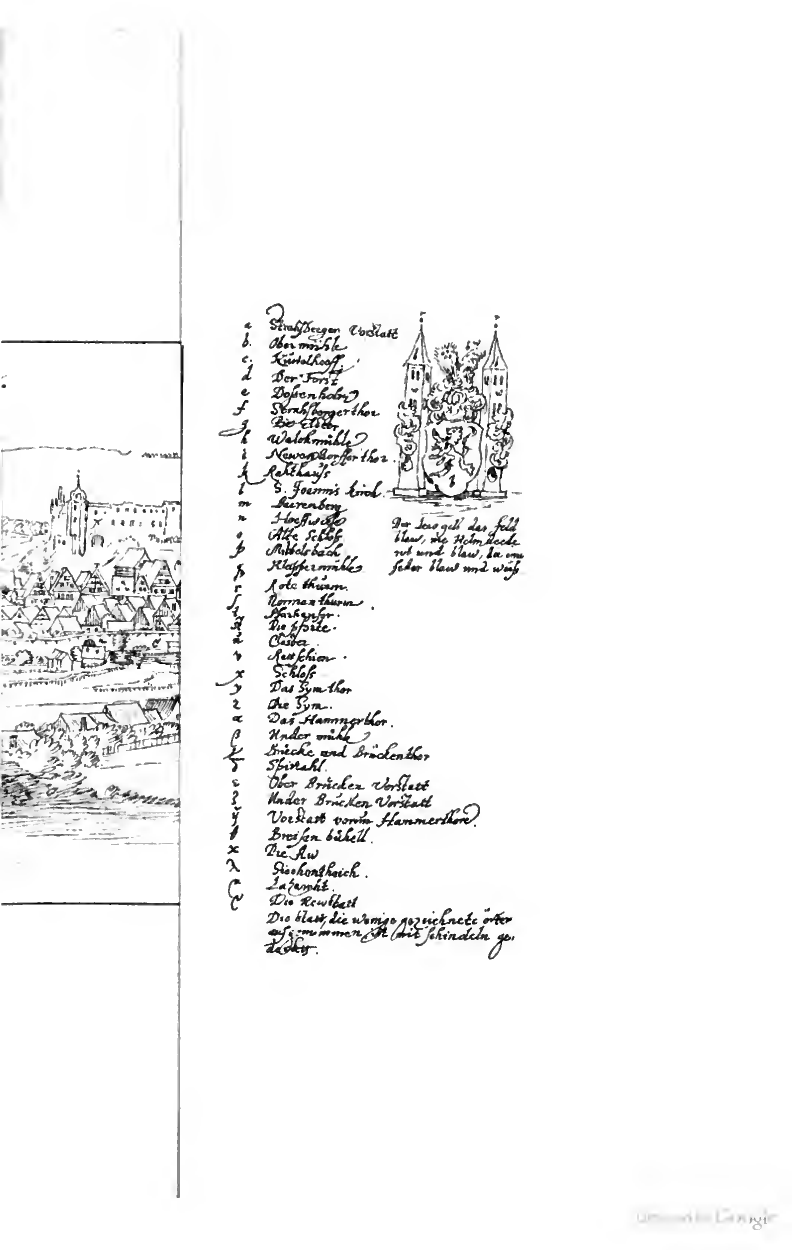 a Strahsbergen Vorstatt
b. Obermühle
c. 
d Der Forst
e
f Strahsbergerthor
g Die Elster
h Walckmühle
i Newendorfferthor.
k Rahthauß
l S. Joannis Kirch.
m Beerenberg
n
o Alte Schloß
p Mittelsbach
q Klappermühle
r Rote thurm.
s Normanthurm.
t
u Die
u
v
x Schloß
y Das Gymthor
z Die Gym.
α Das Hammerthor.
β Under mühle
γ Brücke und Brückenthor
δ Spittahl.
ε Ober Brücken Vorstatt
ζ Under Brücken Vorstatt
η Vorstatt vorm Hammerthore.
θ Breisen bühell.
κ Die Aw
λ Siechenteich.
Lazareht.
Die Newstatt
Die statt, die wenige gezeichnete örter
außgenummen, ist mit schindeln ge-
decket.
Der Lew gelb das feld
blaw, die Helmdecke
rot und blaw, die eine
feder blaw und weiß
Google